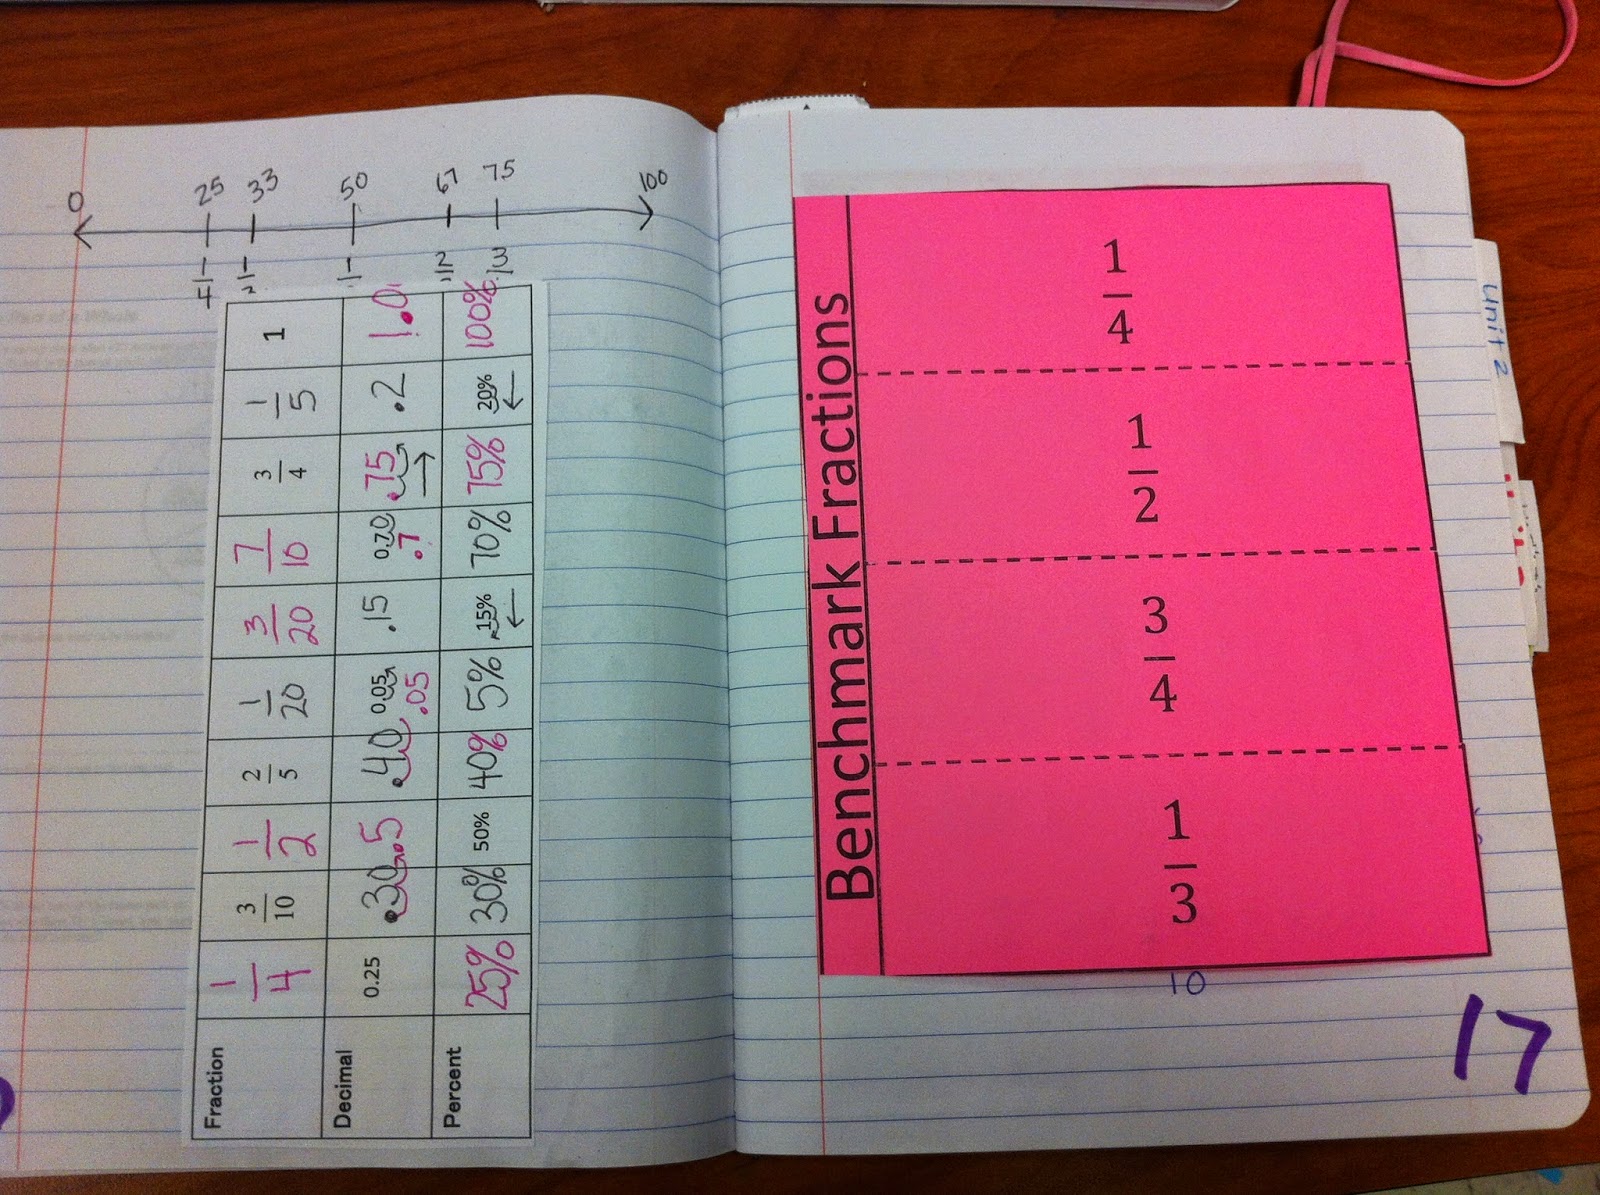 0 25 33 50 67 75 100
Fraction 1/4 3/10 1/2 2/5 1/20 3/20 7/10 3/4 1/5 1
Decimal 0.25 .30 .5 .40 0.05 .05 .15 0.70 .7 .75 .2 1.0
Percent 25% 30% 50% 40% 5% 15% 70% 75% 20% 100%
Benchmark Fractions
1/4
1/2
3/4
1/3
10
17
Unit 2